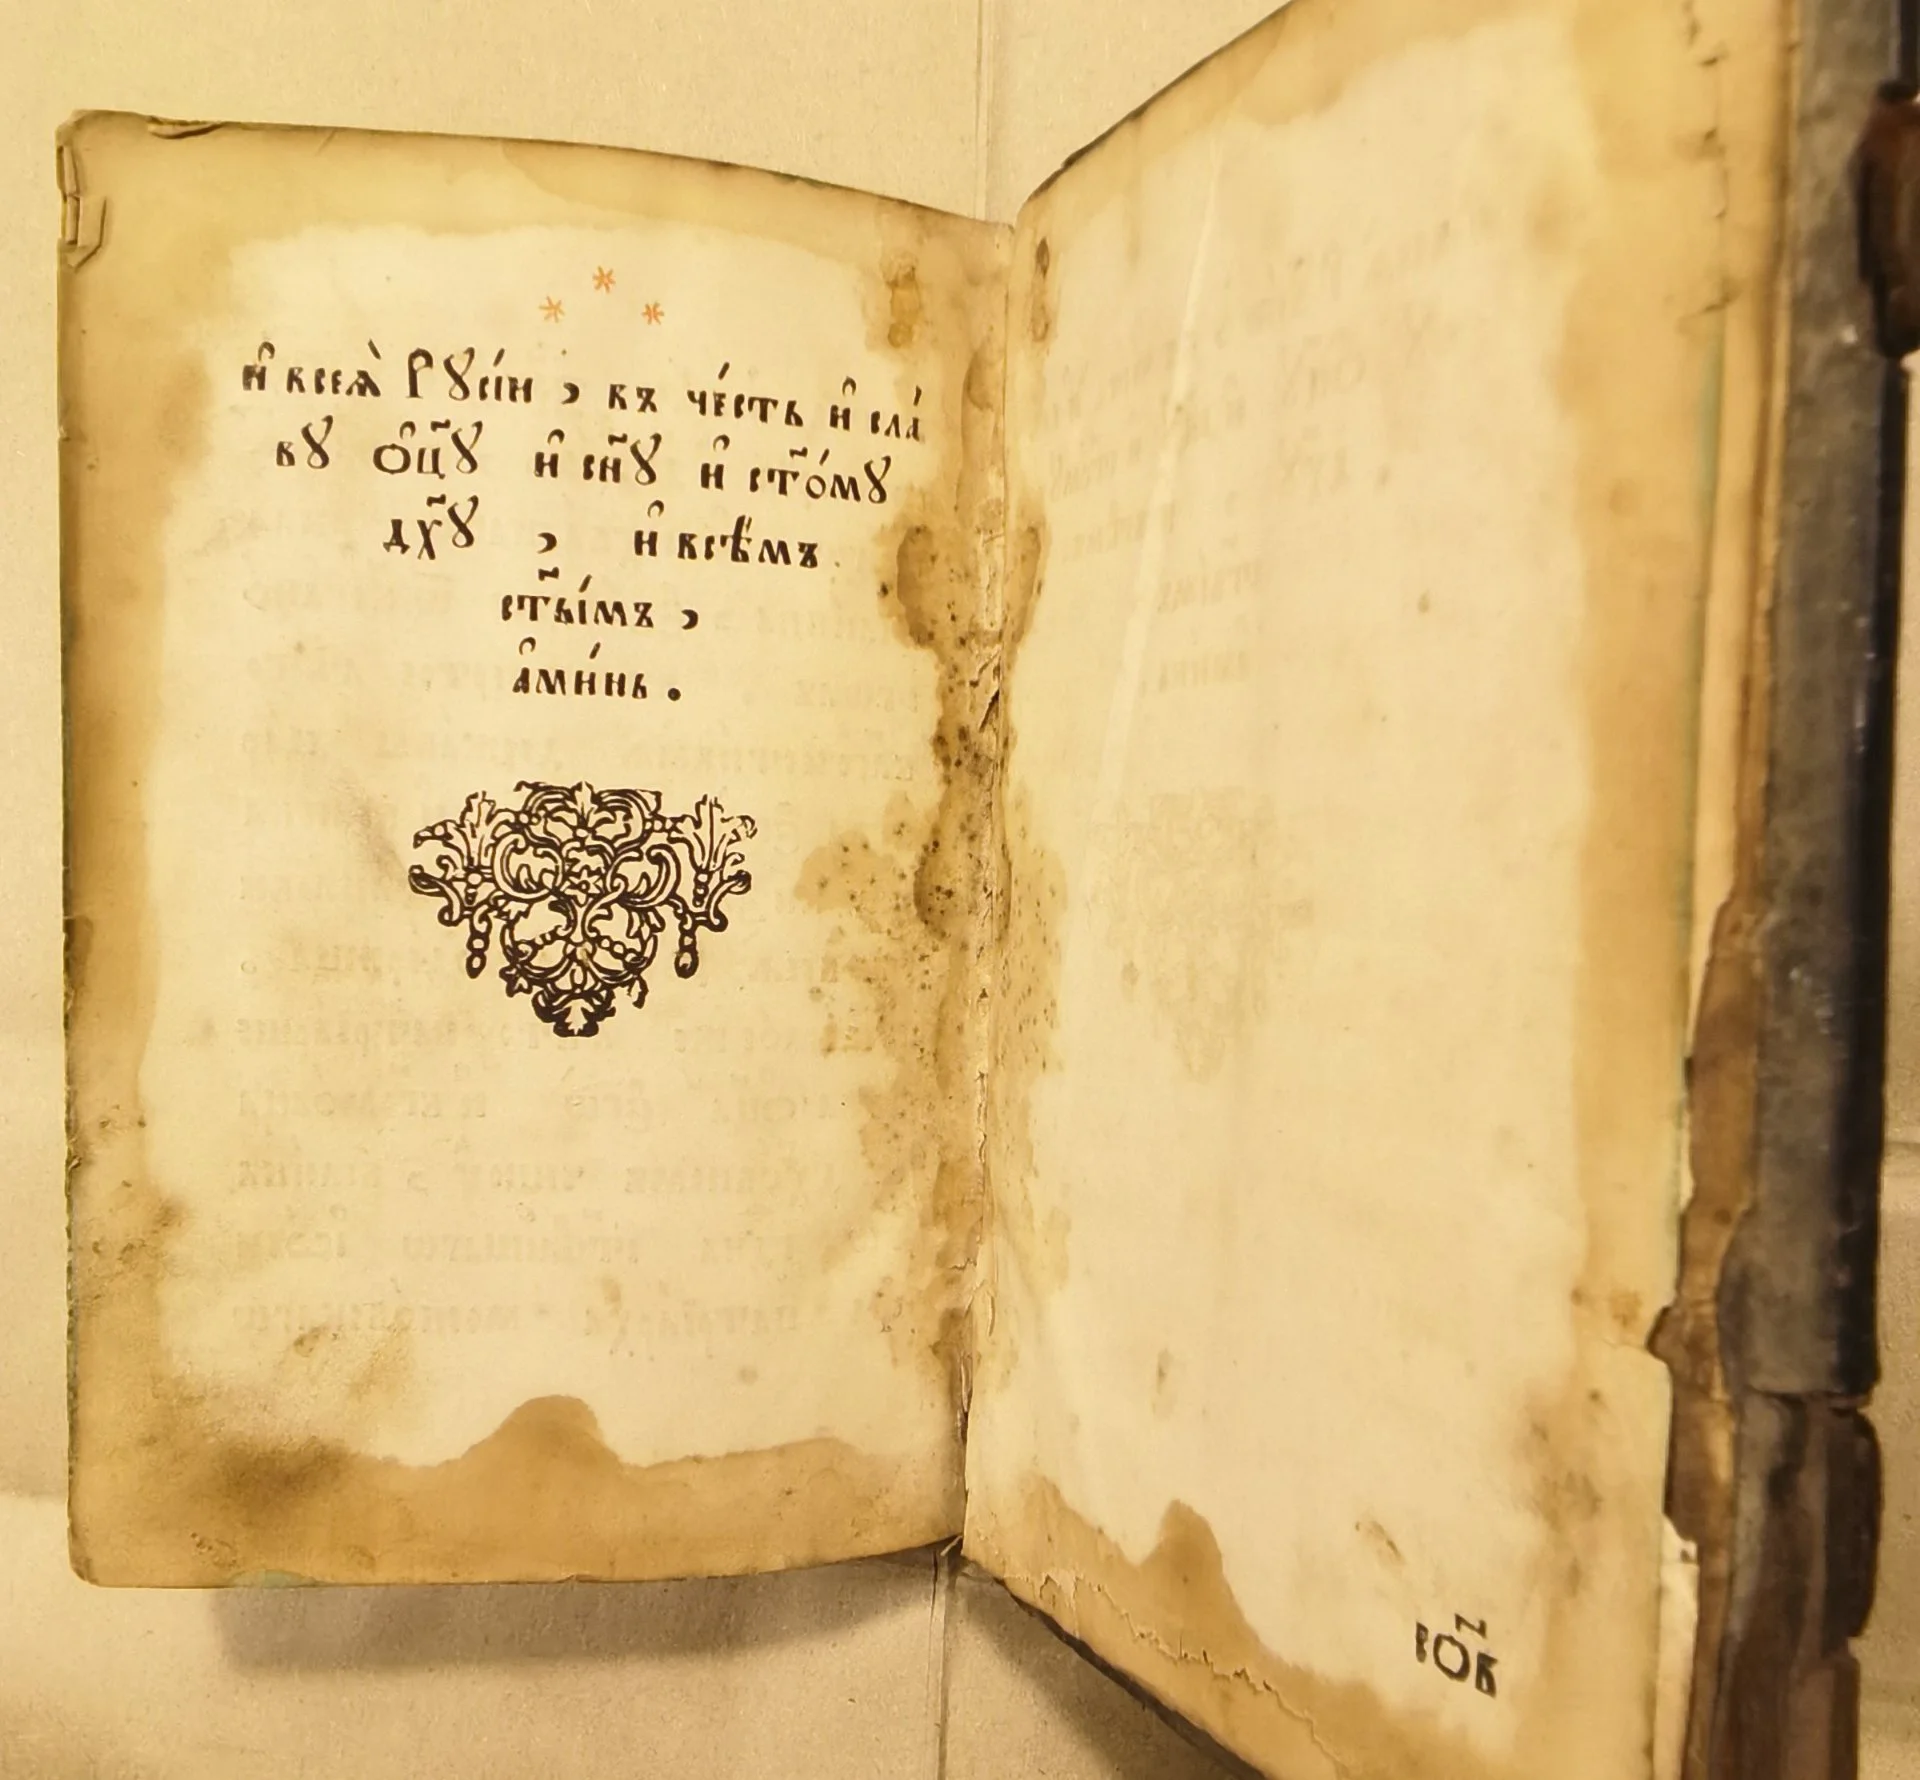 и҆ всея̀ Рꙋсі́и , въ че́сть и҆ сла́
вꙋ ѻ҆ц҃ꙋ и҆ сн҃ꙋ и҆ ст҃о́мꙋ
дх҃ꙋ , и҆ всѣ́мъ
ст҃ы́мъ ,
а҆ми́нь .
со҃в